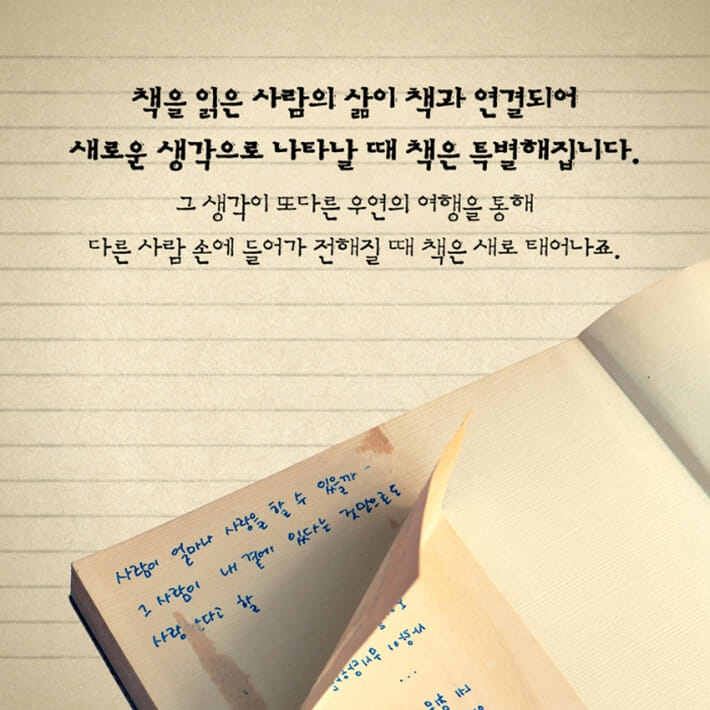 책을 읽은 사람의 삶이 책과 연결되어
새로운 생각으로 나타날 때 책은 특별해집니다.
그 생각이 또다른 우연의 여행을 통해
다른 사람 손에 들어가 전해질 때 책은 새로 태어나죠.
사람이 얼마나 사랑을 할 수 있을까
그 사람이 내 곁에 있다는 것만으로도
사랑 할